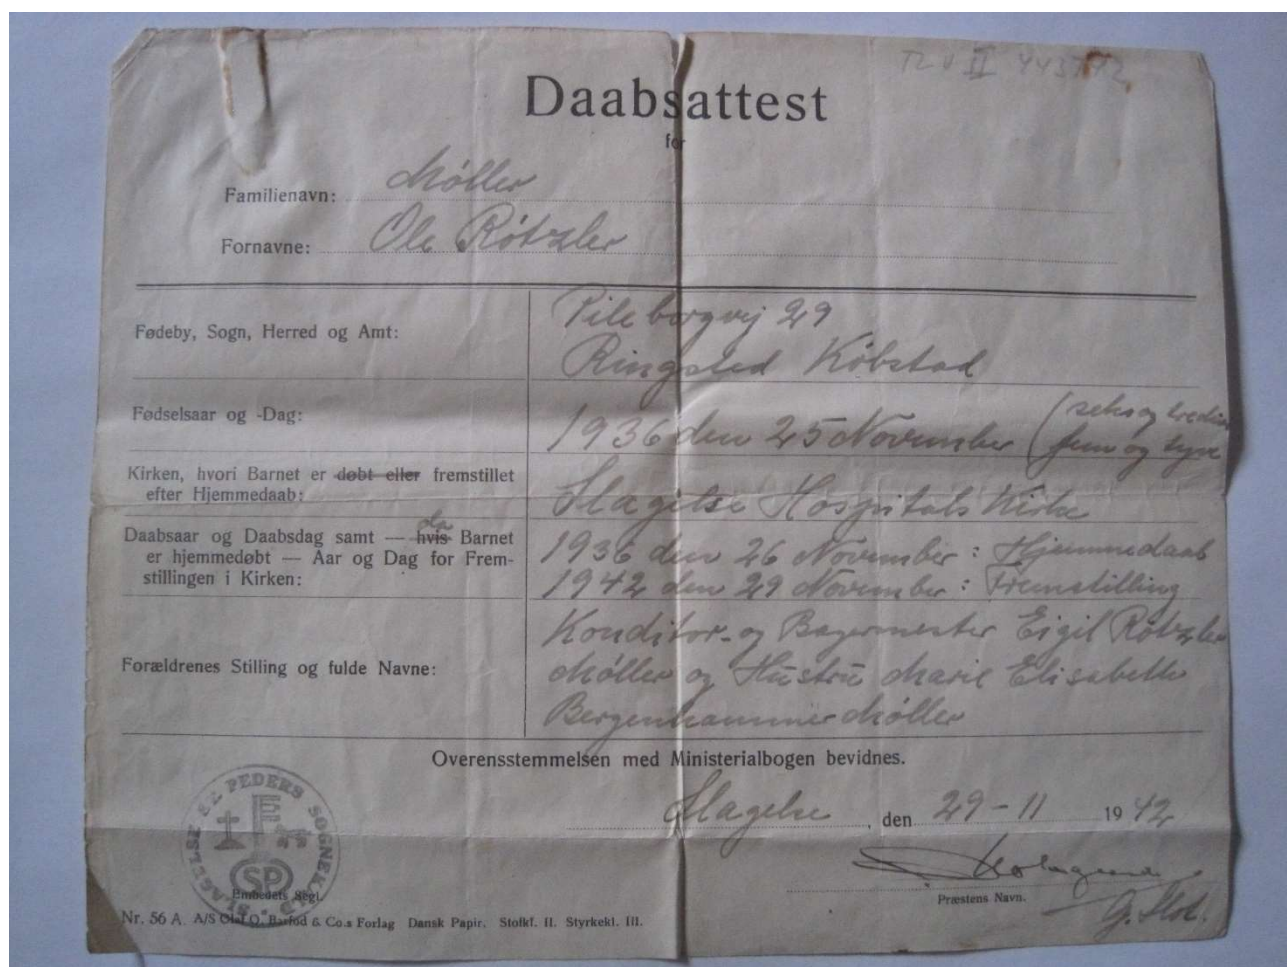 TL V II 443
Daabsattest
for
Familienavn: Møller
Fornavne: Ole Røtzler
Fødeby, Sogn, Herred og Amt:
Pileborgvej 29
Ringsted Købstad
Fødselsaar og -Dag:
1936 den 25 November (seks og tredive
fem og tyve
Kirken, hvori Barnet er døbt eller fremstillet
efter Hjemmedaab:
Slagelse Hospitals Kirke
da
Daabsaar og Daabsdag samt — hvis Barnet
er hjemmedøbt — Aar og Dag for Frem-
stillingen i Kirken:
1936 den 26 November: Hjemmedaab
1942 den 29 November: Fremstilling
Forældrenes Stilling og fulde Navne:
Konditor- og Bagermester Eigil Røtzler
Møller og Hustru Marie Elisabeth
Bergenhammer Møller
Overensstemmelsen med Ministerialbogen bevidnes.
Slagelse, den 29-11 1942
Præstens Navn.
SLAGELSE ST. PEDERS SOGNEKALD
SP
Embedets Segl.
Nr. 56 A. A/S Olaf O. Barfod & Co.s Forlag Dansk Papir. Stofkl. II. Styrkekl. III.